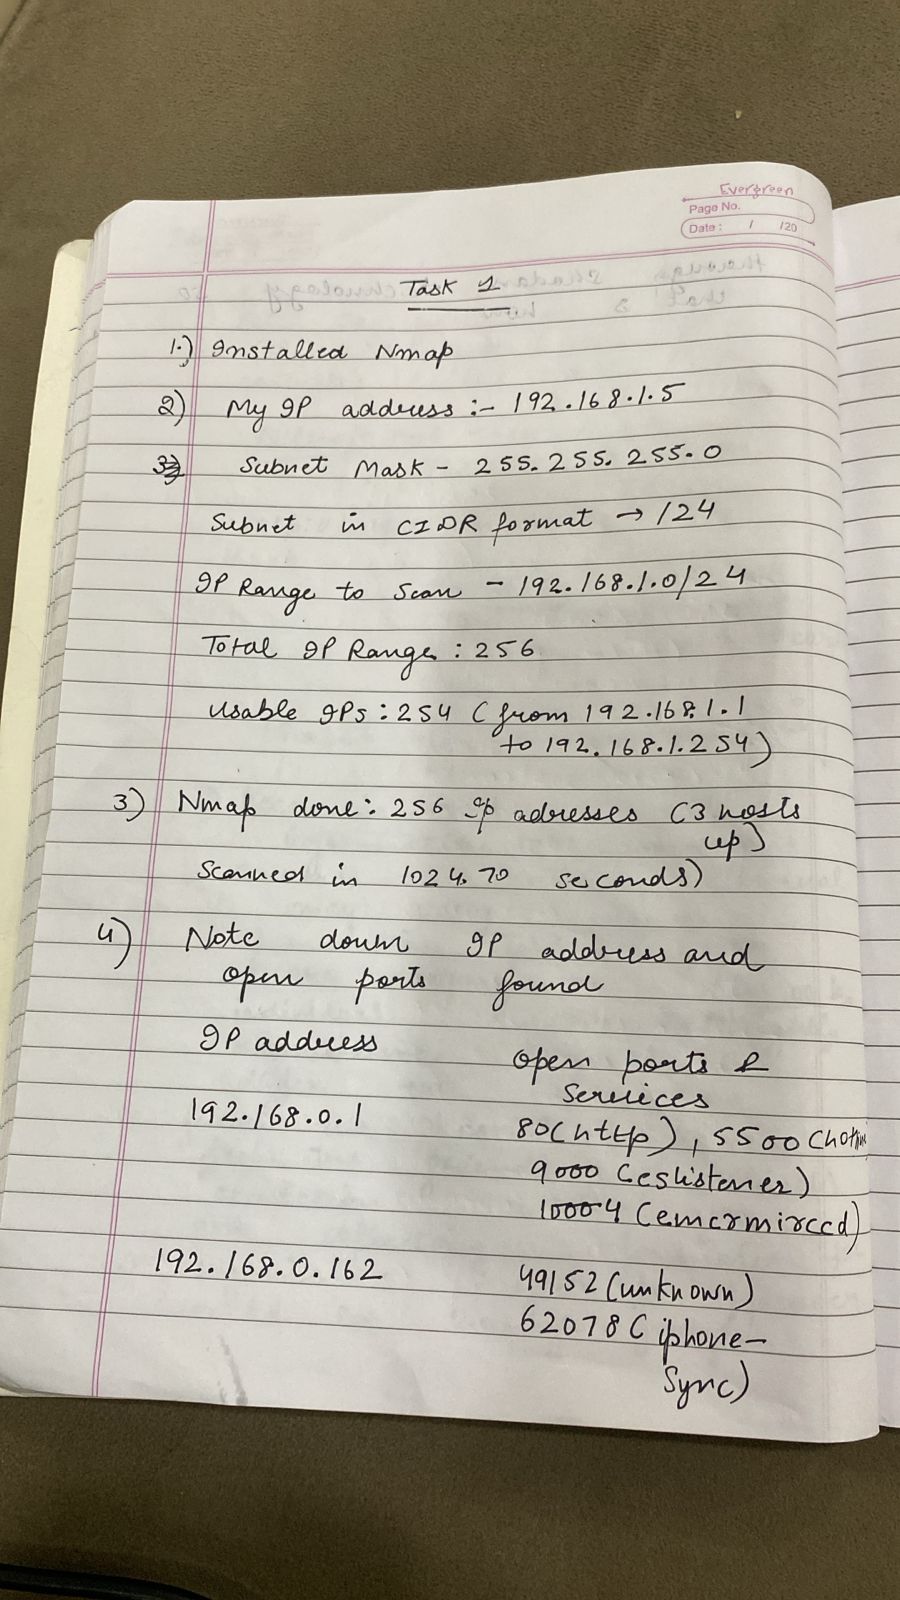 Evergreen
Page No.
Date: / /20
Task 1
1.) Installed Nmap
2) My IP address :- 192.168.1.5
Subnet Mask - 255.255.255.0
Subnet in CIDR format → /24
IP Range to Scan - 192.168.1.0/24
Total IP Range : 256
Usable IPs : 254 (from 192.168.1.1
to 192.168.1.254)
3) Nmap done: 256 Ip adresses (3 hosts
up)
Scanned in 1024.70 seconds)
4) Note down IP address and
open ports found
IP address
open ports &
Services
192.168.0.1
80(http), 5500
9000 (cslistener)
10004 (emcrmirccd)
192.168.0.162
49152 (unknown)
62078 (iphone-
Sync)